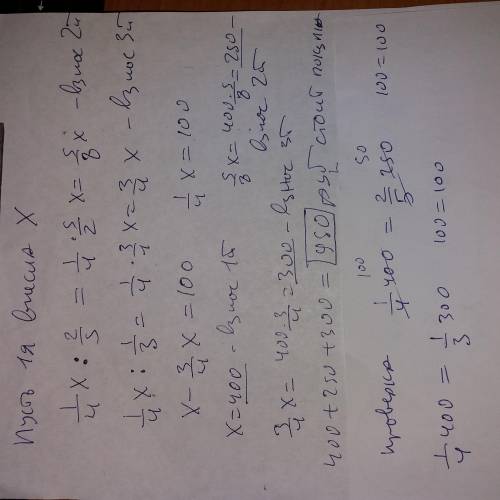 Пусть 1я внесла X
1/4 x : 2/5 = 1/4 · 5/2 x = 5/8 x - взнос 2й
1/4 x : 1/3 = 1/4 · 3/1 x = 3/4 x - взнос 3й
x - 3/4 x = 100   1/4 x = 100
x = 400 - взнос 1й   5/8 x = 400 · 5/8 = 250 - взнос 2й
3/4 x = 400 · 3/4 = 300 - взнос 3й
400 + 250 + 300 = 950 руб стоит покупка
проверка 1/4 400 = 2/5 250   100 = 100
100   50
1/4 400 = 1/3 300   100 = 100